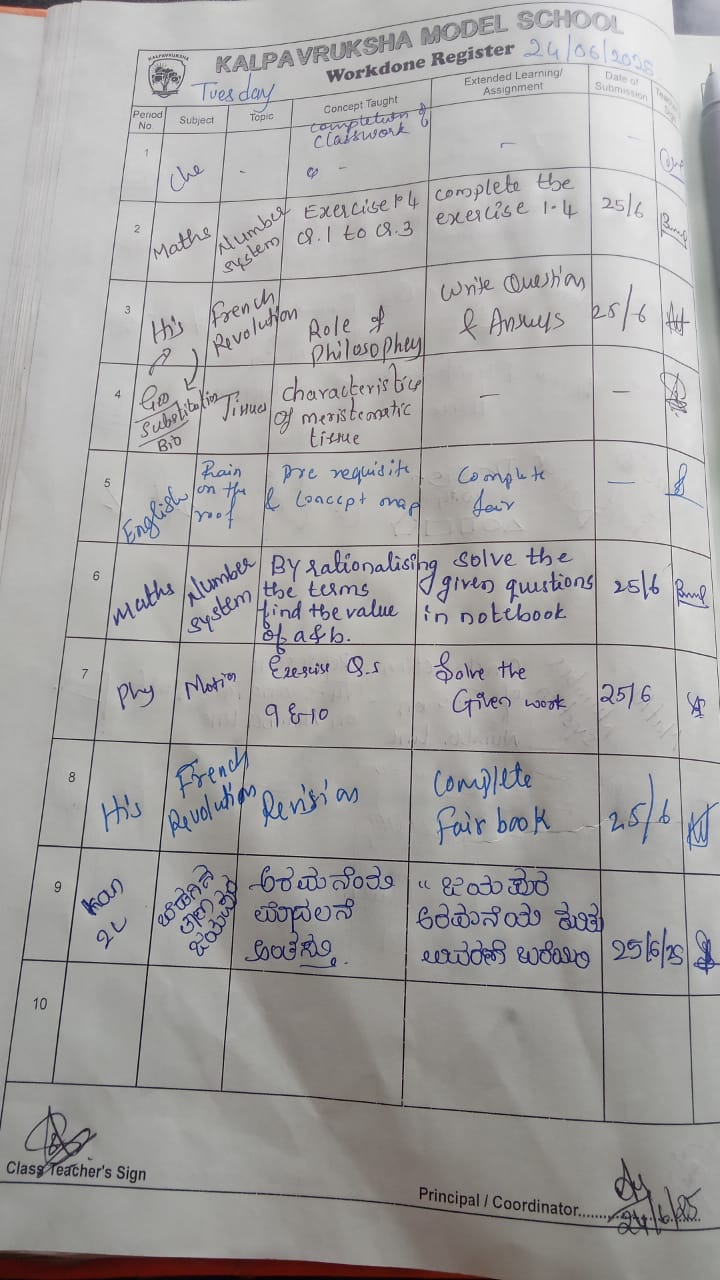 KALPAVRUKSHA
KALPAVRUKSHA MODEL SCHOOL
Workdone Register 24/06/2025
Tuesday
Period No Subject Topic Concept Taught Extended Learning/ Assignment Date of Submission
1 Che - completion of classwork - -
2 Maths Number system Exercise 1.4 Q.1 to Q.3 complete the exercise 1.4 25/6
3 His French Revolution Role of Philosophey Write Question & Answers 25/6
4 Geo Substitution Bio Tissues characteristics of meristematic tissue - -
5 English Rain on the roof Pre requisite & concept map Complete fair -
6 Maths Number system By rationalising the terms find the value of a & b. solve the given questions in notebook 25/6
7 Phy Motion Exercise Q.s 9 & 10 Solve the Given work 25/6
8 His French Revolution Revision Complete Fair book 25/6
9 Kan 2L ಜಯಪುರ ಅರಮನೆಯ ಮೊದಲನೆ ಅಂತಸ್ತು. "ಜಯಪುರ ಅರಮನೆಯ ಕುರಿತು ಬರೆಯಿರಿ 25/6/25
10
Class Teacher's Sign
Principal / Coordinator........
24/6/25